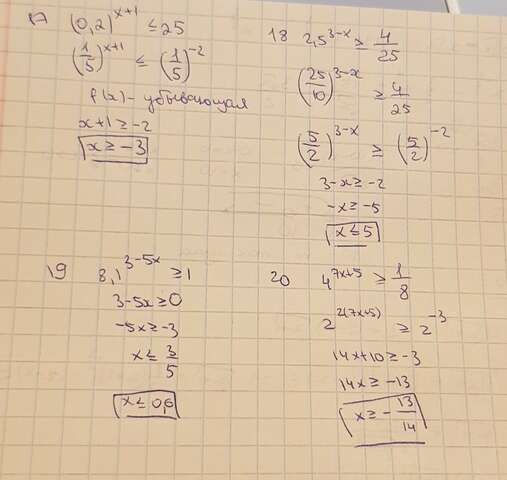 17 (0,2)^(x+1) ≤ 25
(1/5)^(x+1) ≤ (1/5)^(-2)
f(x) - убывающая
x+1 ≥ -2
x ≥ -3
18 2,5^(3-x) ≥ 4/25
(25/10)^(3-x) ≥ 4/25
(5/2)^(3-x) ≥ (5/2)^(-2)
3-x ≥ -2
-x ≥ -5
x ≤ 5
19 8,1^(3-5x) ≥ 1
3-5x ≥ 0
-5x ≥ -3
x ≤ 3/5
x ≤ 0,6
20 4^(7x+5) ≥ 1/8
2^(2(7x+5)) ≥ 2^(-3)
14x+10 ≥ -3
14x ≥ -13
x ≥ -13/14